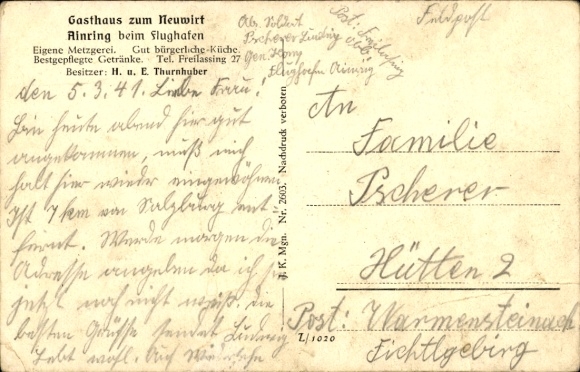 Gasthaus zum Neuwirt
Ainring beim Flughafen
Eigene Metzgerei. Gut bürgerliche Küche.
Bestgepflegte Getränke. Tel. Freilassing 27
Besitzer: H. u. E. Thurnhuber
Abs. Soldat
Pscherer Ludwig
Flughafen Ainring
Post: Freilassing
Obb.
Feldpost
den 5.3.41. Liebe Frau!
Bin heute abend hier gut
angekommen, muß mich
halt hier wieder eingewöhnen
Ist 7 km von Salzburg ent
fernt. Werde morgen die
Adresse angeben da ich sie
jetzt noch nicht weiß. die
besten Grüße sendet Ludwig
Lebt wohl. Auf Wiedersehn
J. K. Mgn. Nr. 2603. Nachdruck verboten
L/1020
An
Familie
Pscherer
Hütten 2
Post: Warmensteinach
Fichtlgebirg